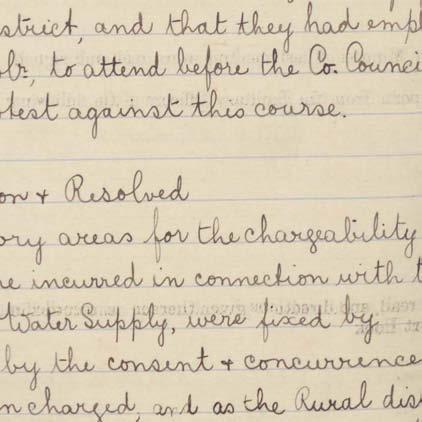 strict, and that they had empl
olr, to attend before the Co. Counci
otest against this course.
on & Resolved
ory areas for the chargeability
e incurred in connection with t
Water Supply, were fixed by
by the consent & concurrence
n charged, and as the Rural dis